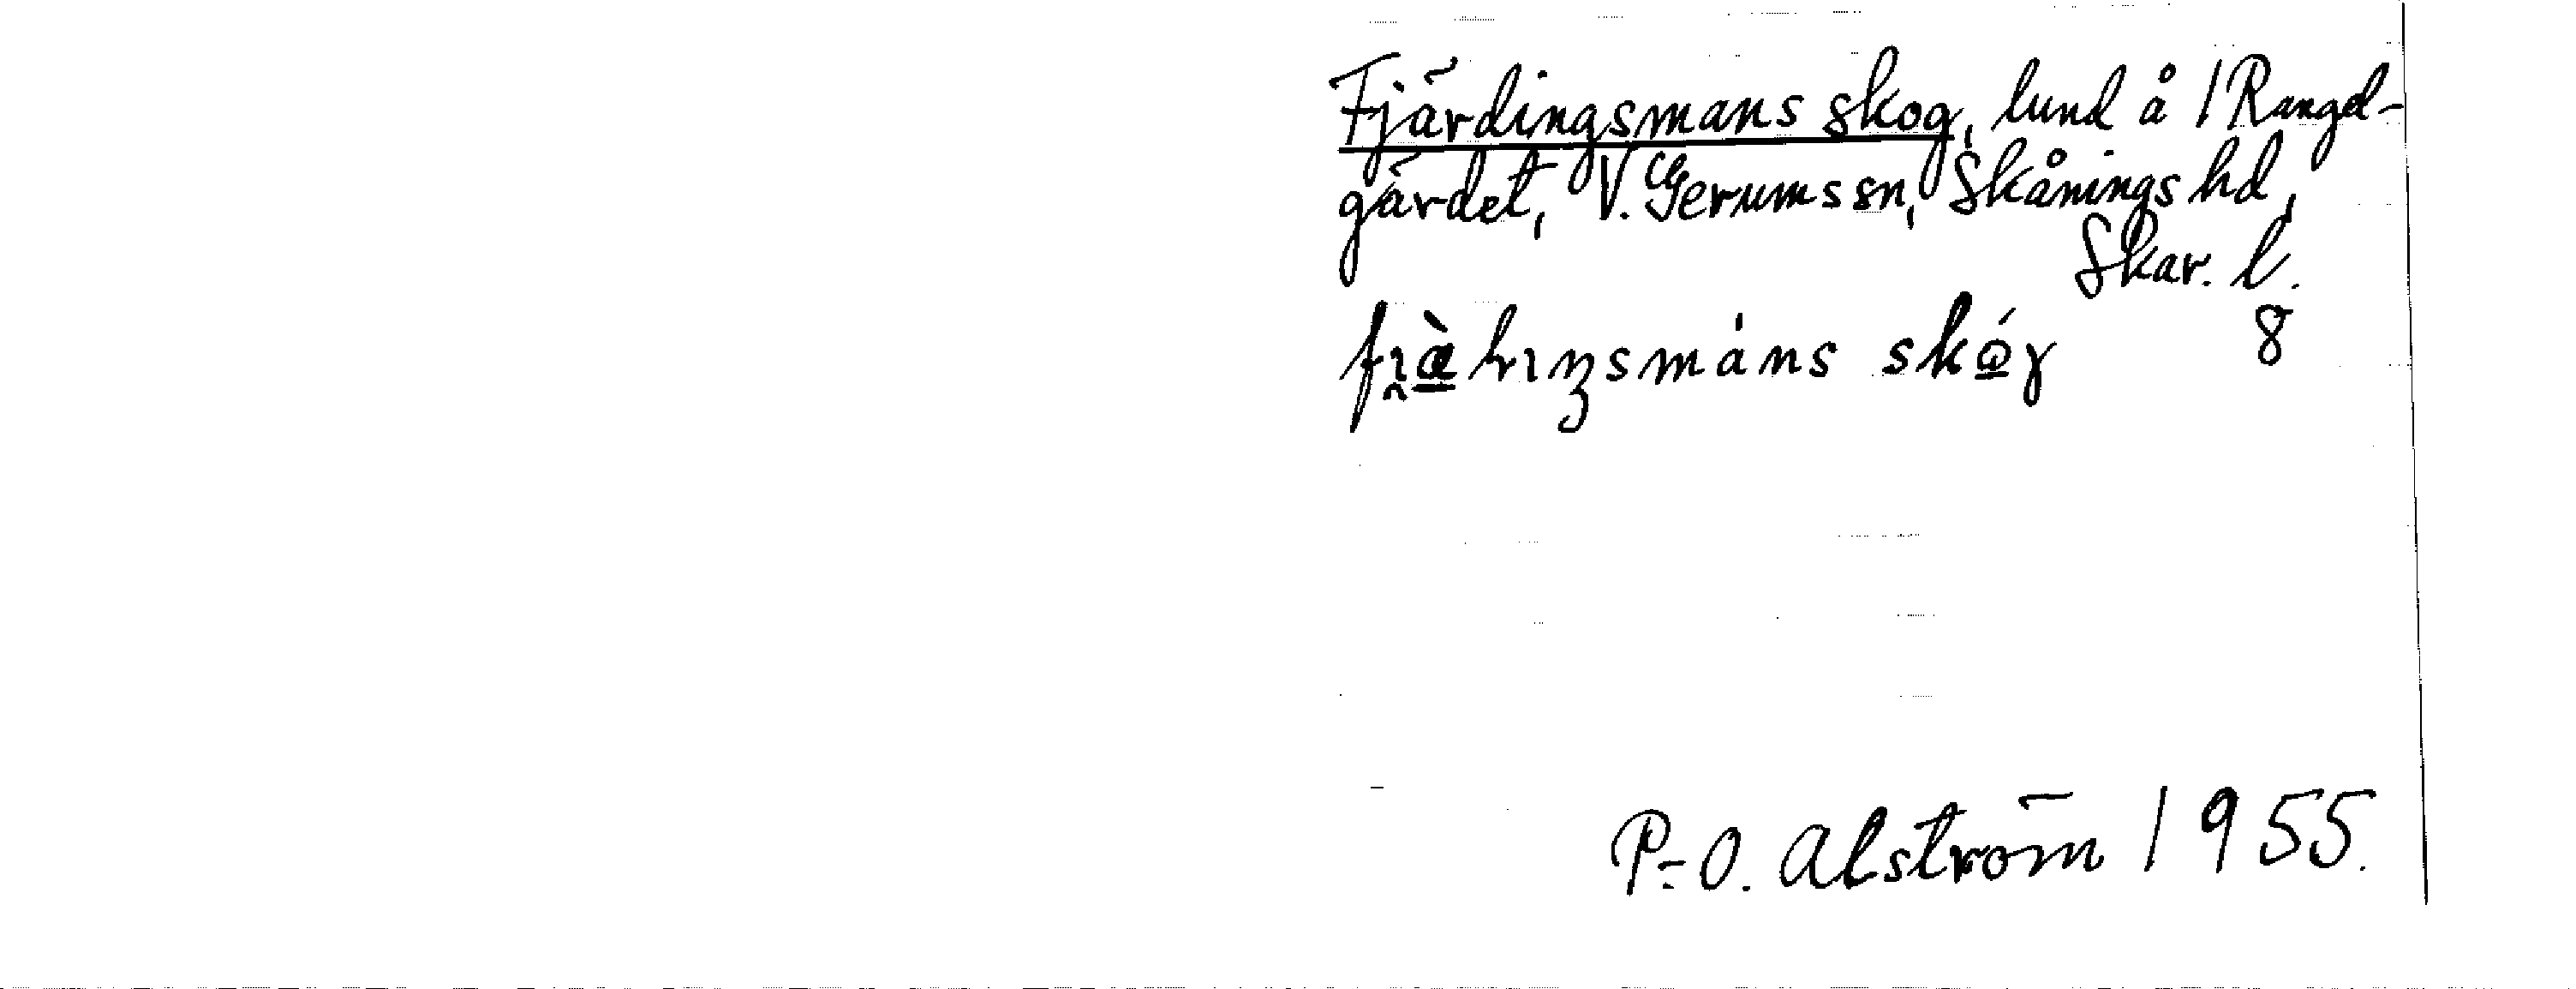 Fjärdingsmans skog, lund å 1 Rangel-
gärdet, V. Gerums sn, Skånings hd,
Skar. l.
8
P-O. Alström 1955.